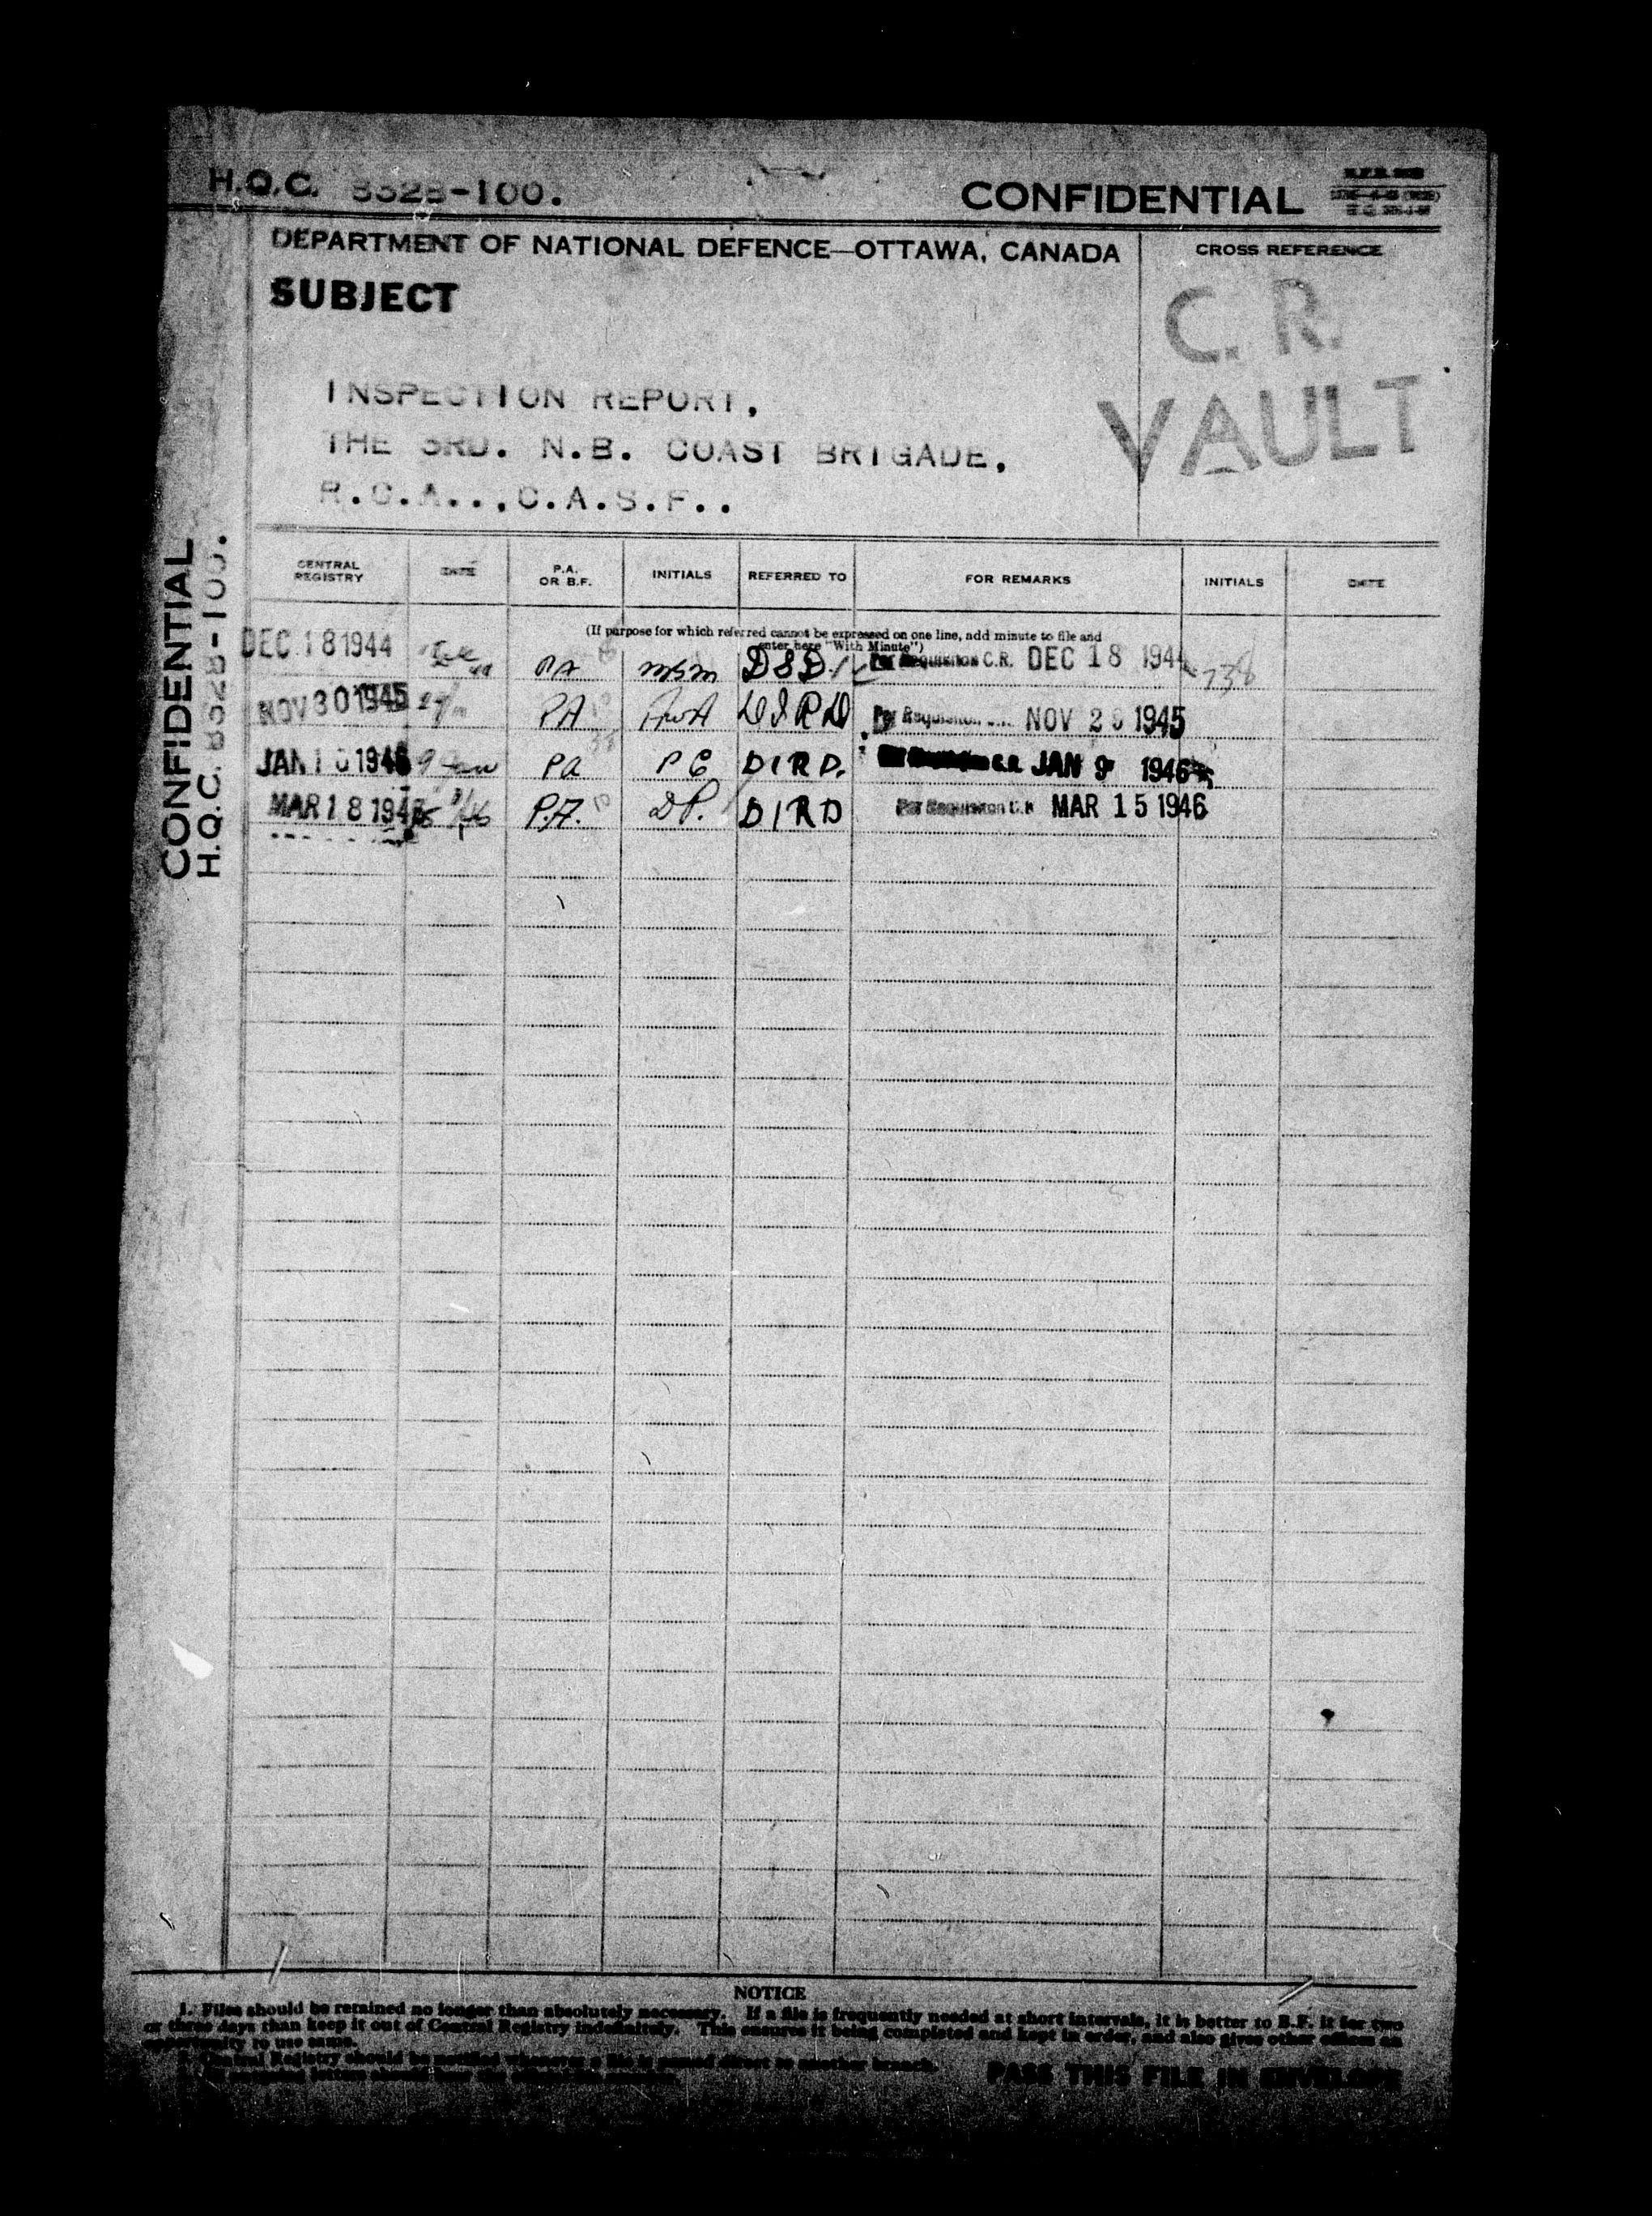 H.Q.C. 8328-100.
CONFIDENTIAL
DEPARTMENT OF NATIONAL DEFENCE—OTTAWA, CANADA
CROSS REFERENCE
SUBJECT
C. R.
VAULT
INSPECTION REPORT,
THE 3RD. N.B. COAST BRIGADE,
R.C.A..,C.A.S.F..
CONFIDENTIAL
H.Q.C. 8328-100.
CENTRAL REGISTRY DATE P.A. OR B.F. INITIALS REFERRED TO FOR REMARKS INITIALS DATE
(If purpose for which referred cannot be expressed on one line, add minute to file and
enter here "With Minute")
DEC 18 1944 PA DSD Per Requisition C.R. DEC 18 1944 738
NOV 30 1945 PA DIRD Per Requisition NOV 1945
JAN 10 1946 9 Jan PA DIRD. C.R. JAN 9 1946
MAR 18 1946 P.A. DP. DIRD Per Requisition C.R. MAR 15 1946
NOTICE
1. Files should be retained no longer than absolutely necessary. If a file is frequently needed at short intervals, it is better to B.F. it for two
or three days than keep it out of Central Registry indefinitely. This ensures it being completed and kept in order, and also gives other offices an
opportunity to use same.
Central Registry should be notified whenever a file is passed direct to another branch.
PASS THIS FILE IN ENVELOPE